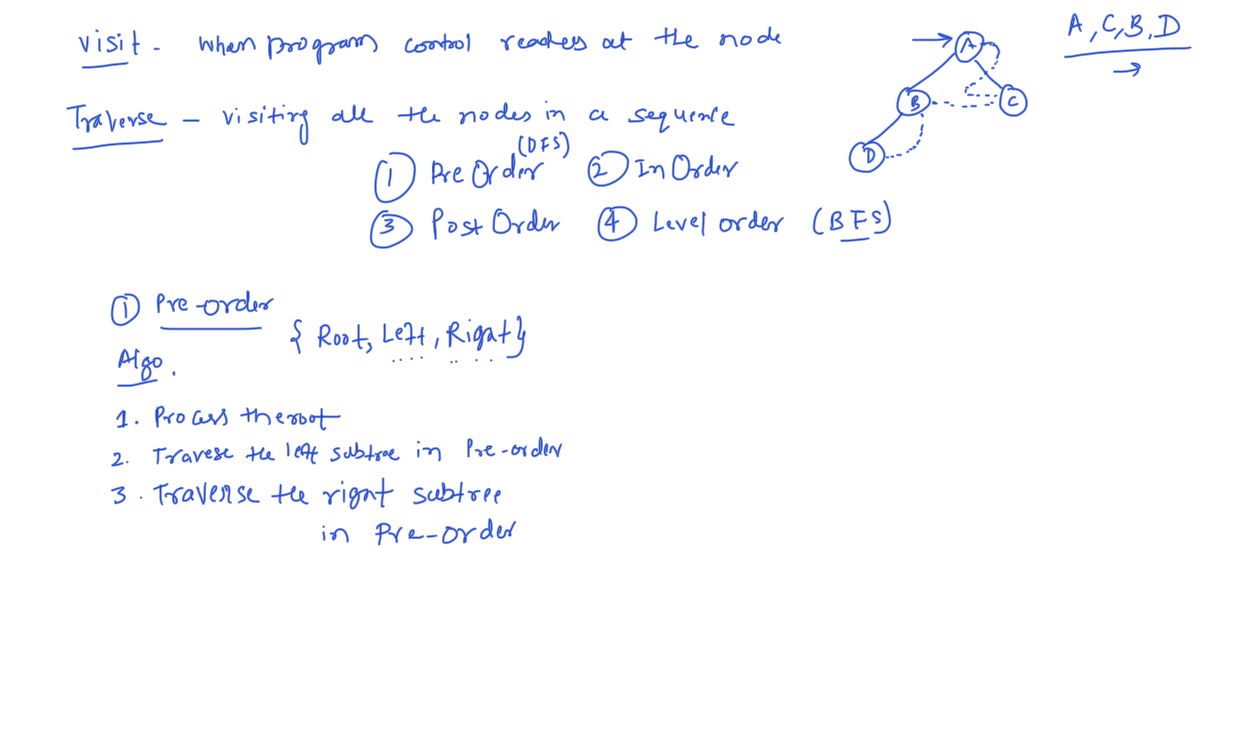 visit - when program control reaches at the node
A, C, B, D
Traverse - visiting all the nodes in a sequence
A
B
C
D
① Pre Order (DFS) ② In Order
③ Post Order ④ Level order (BFS)
① Pre-order
{ Root, Left, Right }
Algo.
1. Process the root
2. Travese the left subtree in Pre-order
3. Traverse the right subtree
in Pre-order